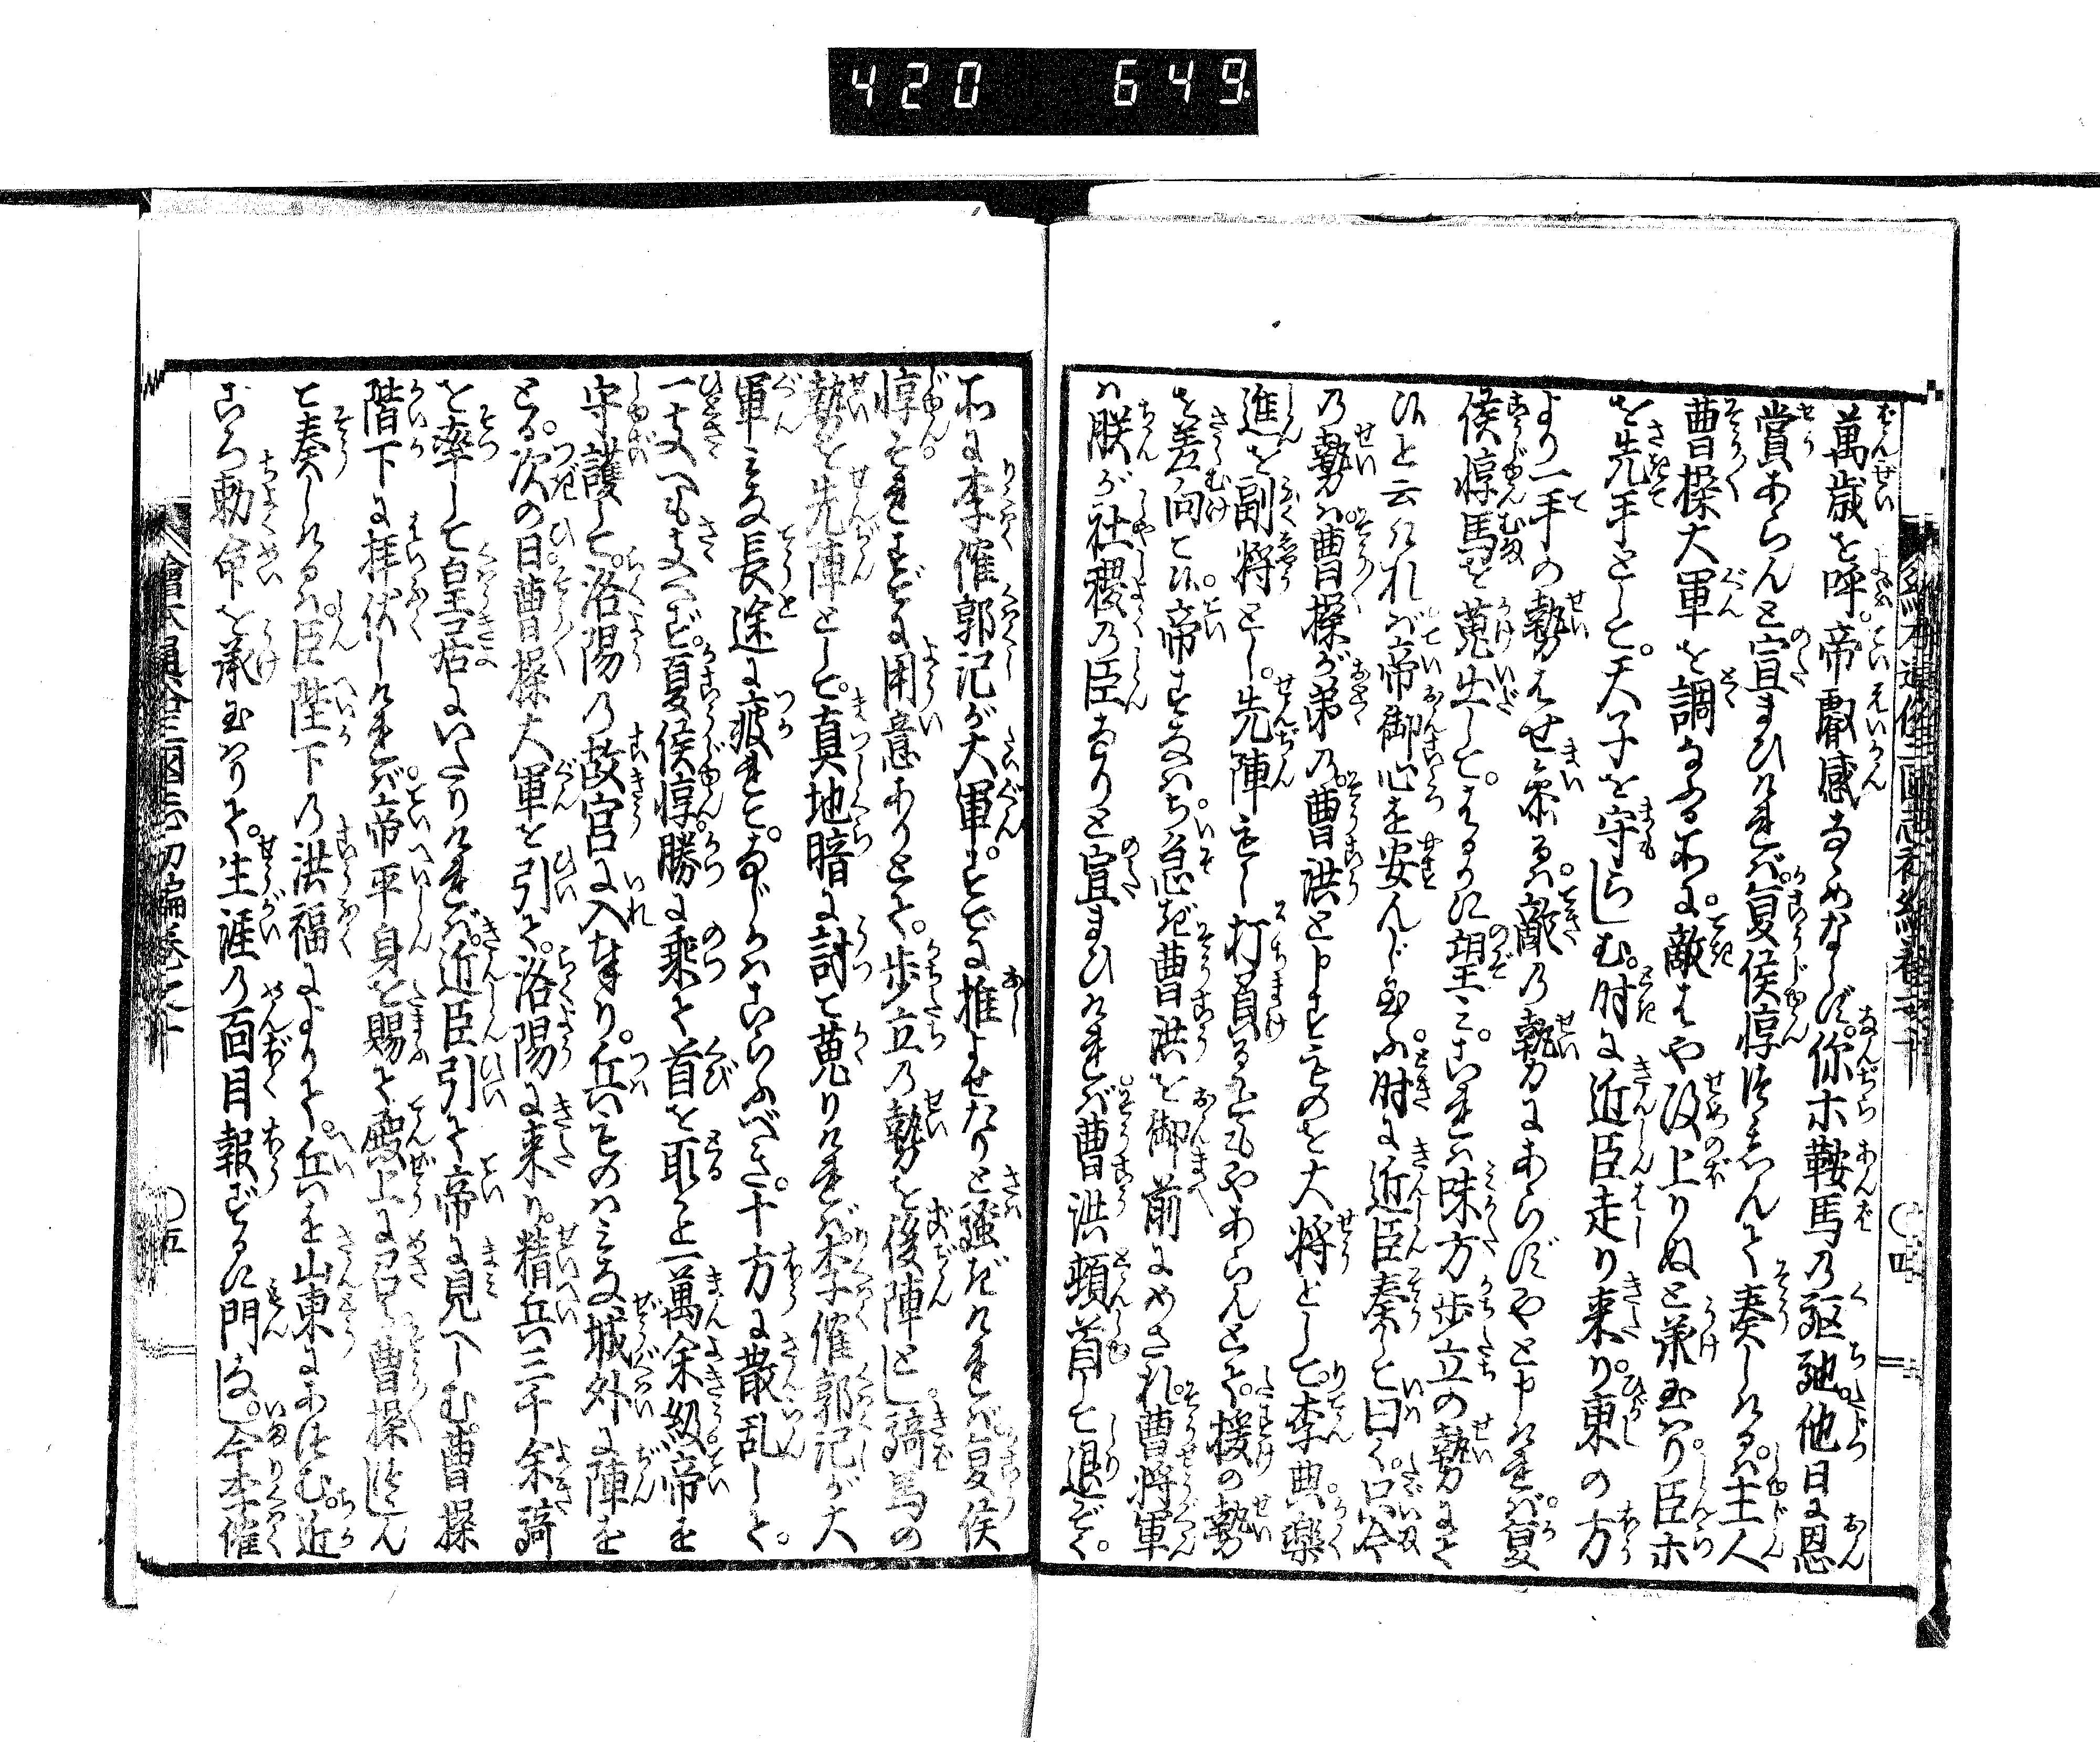 420 649
萬歳を呼。帝叡感なゝめならず。你ホ鞍馬の駆馳。他日に恩
賞あらんと宣まひければ。夏侯惇つゝしんで奏しけるは。主人
曹操大軍を調る所に。敵はや攻上りぬと承玉はり。臣ホ
を先手として。天子を守らしむ。時に近臣走り来り。東の方
より一手の勢はせ参るは。敵の勢にあらずやと申ければ。夏
侯惇馬を蒐出して。はるかに望み。これは味方歩立の勢にて
候と云ければ。帝御心を安んじ玉ふ。時に近臣奏して曰く。只今
の勢は。曹操が弟の。曹洪と申すものを大将として。李典。楽
進を副将とし。先陣もし打負る事もやあらんとて。援の勢
を差向て候。帝すなはち。急ぎ曹洪を御前にめされ。曹将軍
は朕が社稷の臣なりと宣まひければ。曹洪頓首して退ぞく。
所に李傕郭汜が大軍。すでに推よせたりと騒ぎければ。夏侯
惇すでに用意ありとて。歩立の勢を後陣とし。騎馬の
勢を先陣として。真地暗に討て蒐りければ。李傕郭汜が大
軍みな長途に疲れて。なじかはこらふべき。十方に散乱して。
一支へも支へず。夏侯惇。勝に乗て首を取こと一萬余級。帝を
守護して。洛陽の故宮に入奉り。兵ものはみな城外に陣を
とる。次の日。曹操大軍を引て。洛陽に来り。精兵三千余騎
を率して皇居にいたりければ。近臣引て帝に見へしむ。曹操
階下に拝伏しければ。帝平身を賜て殿上に召る。曹操謹しん
で奏しけるは。臣陛下の洪福によりて。兵を山東にあつむ。近
ごろ勅命を承玉はりて。生涯の面目報ずるに門なし。今李傕